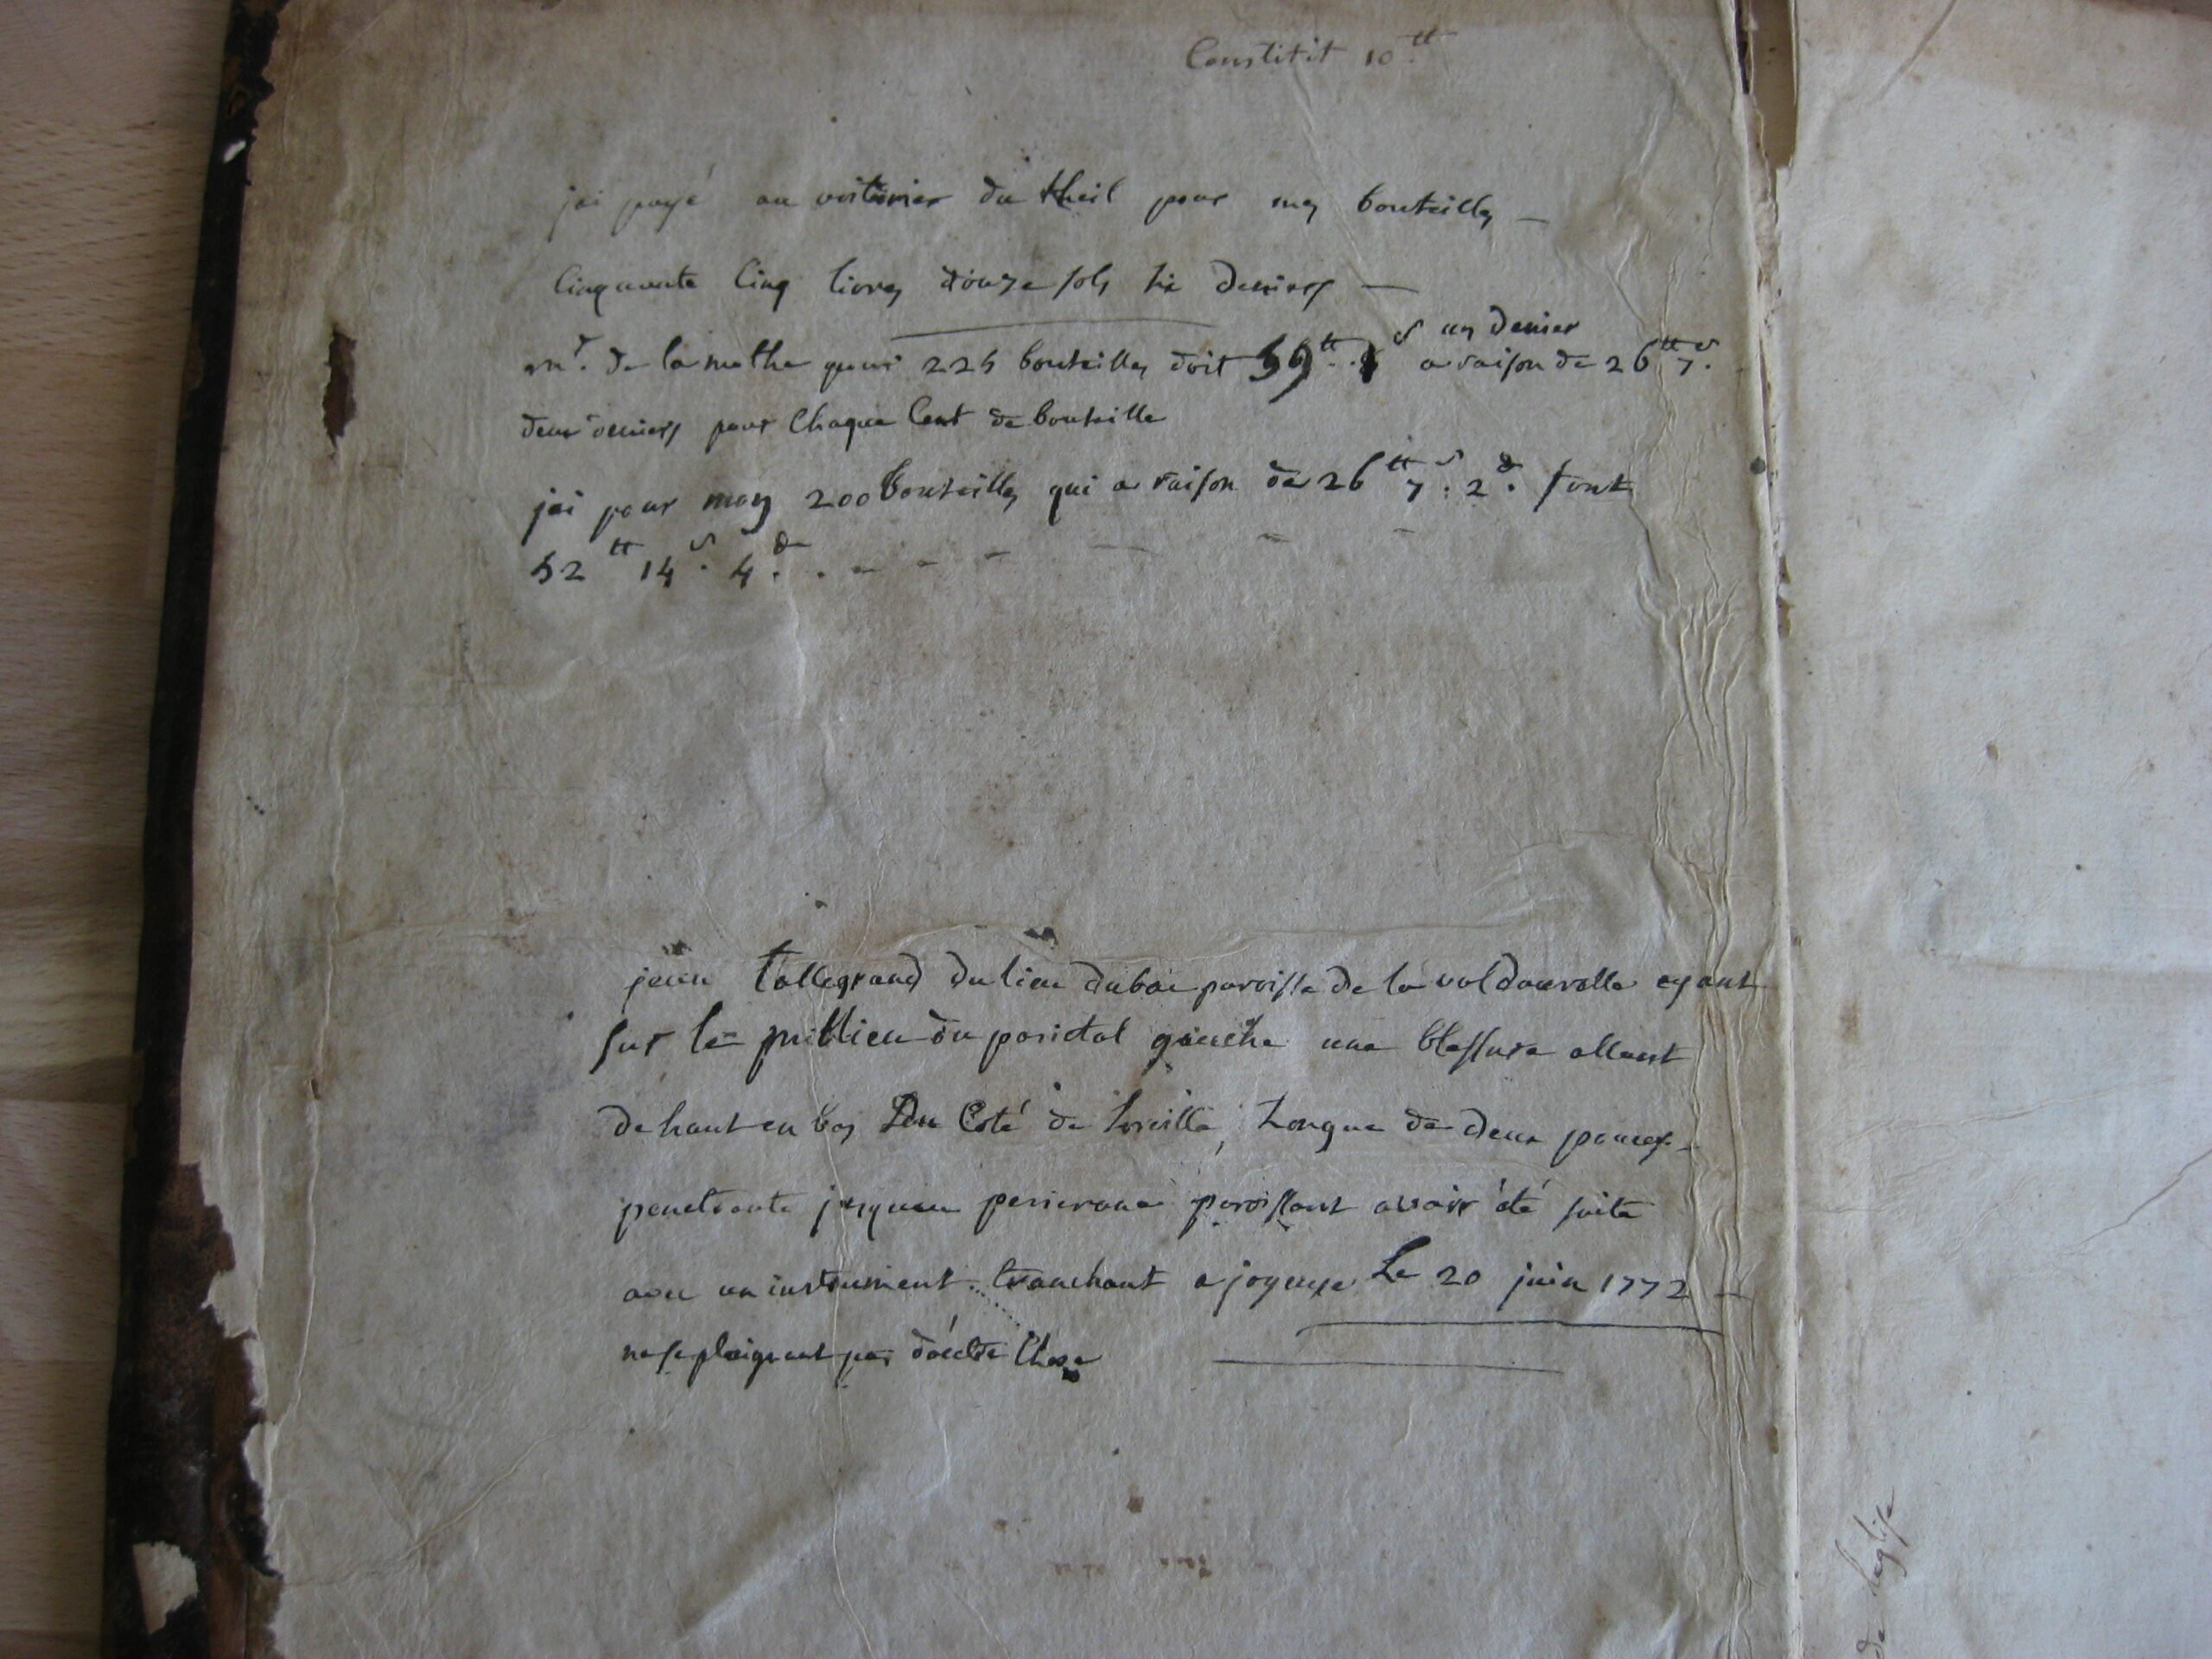 Constitit 10 tt
jai payé au voiturier du theil pour mes bouteilles —
Cinquante Cinq livres douze sols six deniers —
un denier
mr. de la mothe pour 225 bouteilles doit 59 tt . 1 s a raison de 26 tt 7 s.
deux deniers pour Chaque Cent de bouteille
jai pour moy 200 bouteilles qui a raison de 26 tt 7 s . 2 d . font
52 tt 14 s . 4 d . . - - - - - -
jean tallegrand du lieu dubac paroisse de la valdaurelle ayant
sur le millieu du parietal gauche une blessure allant
de haut en bas Du Coté de loreille, Longue de deux pouces -
penetrante jusquau pericrane paroissant avoir été faite
avec un instrument tranchant a joyeuse Le 20 juin 1772 -
ne se plaignant pas dautre Chose
de leglise